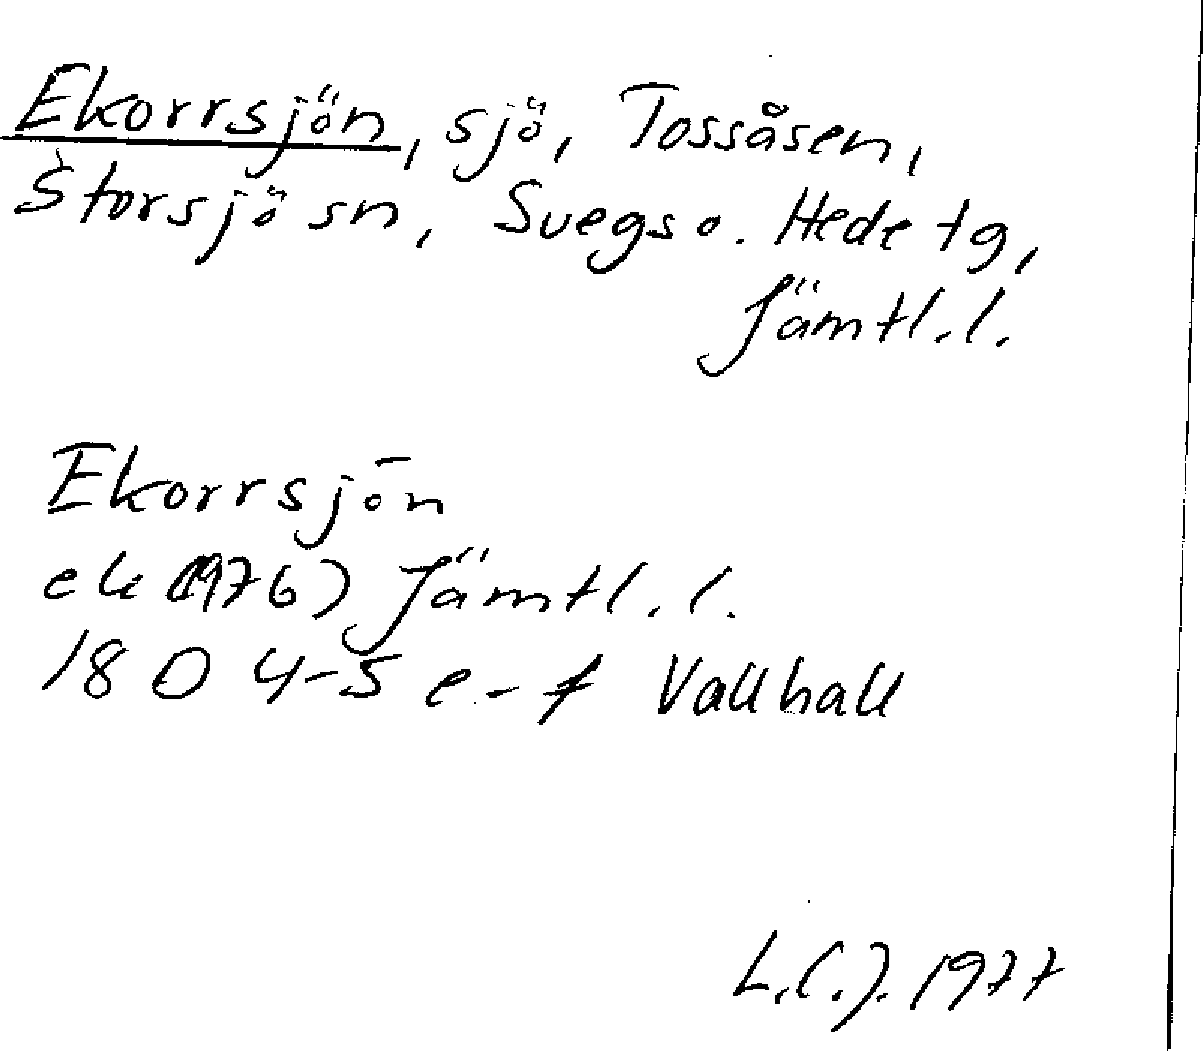 Ekorrsjön, sjö, Tossåsen,
Storsjö sn, Svegs o. Hede tg,
Jämtl.l.
Ekorrsjön
ek (1976) Jämtl.l.
18 D 4-5 e-f Vallhall
1977